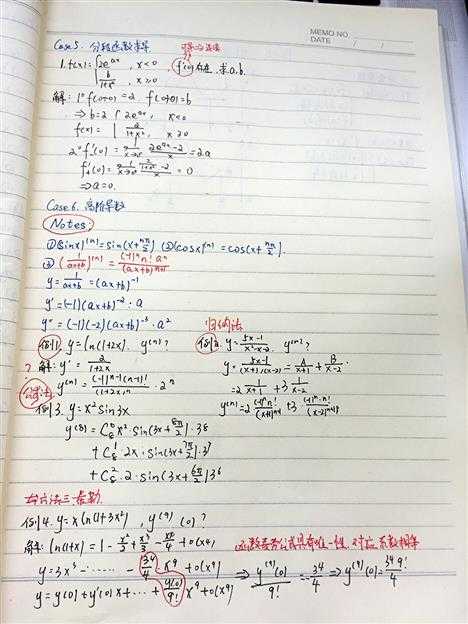 MEMO NO.
DATE / /
Case 5. 分段函数求导
可导⇒连续
1. f(x) = { 2e^{ax}, x<0
b/(1+x²), x≥0 f'(0)存在, 求a.b.
解: 1° f(0-0)=2 f(0+0)=b
⇒ b=2 { 2e^{ax}, x<0
f(x) = { 2/(1+x²), x≥0
2° f'_-(0) = lim_{x→0} (2e^{ax}-2)/x = 2a
f'_+(0) = lim_{x→0} (2/(1+x²)-2)/x = 0
⇒ a=0.
Case 6. 高阶导数
Notes:
① (sinx)^{(n)} = sin(x+nπ/2) ② (cosx)^{(n)} = cos(x+nπ/2).
③ (1/(ax+b))^{(n)} = (-1)^n n! a^n/(ax+b)^{n+1}
y = 1/(ax+b) = (ax+b)^{-1}
y' = (-1)(ax+b)^{-2}·a
y'' = (-1)(-2)(ax+b)^{-3}·a²
归纳法
例1. y=ln(1+2x). y^{(n)}? 例2. y=(5x-1)/(x²-x-2) y^{(n)}?
? 解: y' = 2/(1+2x) y = (5x-1)/((x+1)(x-2)) = A/(x+1) + B/(x-2)
公式法 y^{(n)} = (-1)^{n-1}(n-1)!/(1+2x)^n · 2^n = 2 1/(x+1) + 3 1/(x-2)
例3. y=x² sin3x y^{(n)} = 2 (-1)^n·n!/(x+1)^{n+1} + 3 (-1)^n·n!/(x-2)^{n+1}
y^{(8)} = C_8^0 x²·sin(3x+8π/2)·3^8
+ C_8^1 2x·sin(3x+7π/2)·3^7
+ C_8^2·2·sin(3x+6π/2)3^6
方法三:泰勒
例4. y=xln(1+3x²), y^{(9)}(0)?
解: ln(1+x) = 1-x²/2+x³/3-x⁴/4+o(x⁴) 函数泰勒公式具有唯一性, 对应系数相等
y=3x³-······-3⁴/4 x⁹+o(x⁹) ⇒ y^{(9)}(0)/9! = -3⁴/4 ⇒ y^{(9)}(0) = 3⁴9!/4
y=y(0)+y'(0)x+···+y^{(9)}(0)/9! x⁹+o(x⁹)